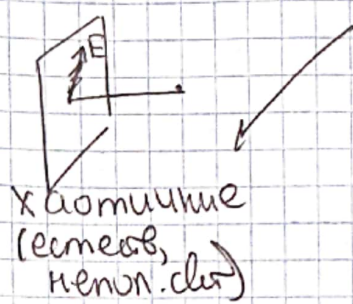 E
хаотичние
(естеств,
непол. свет)